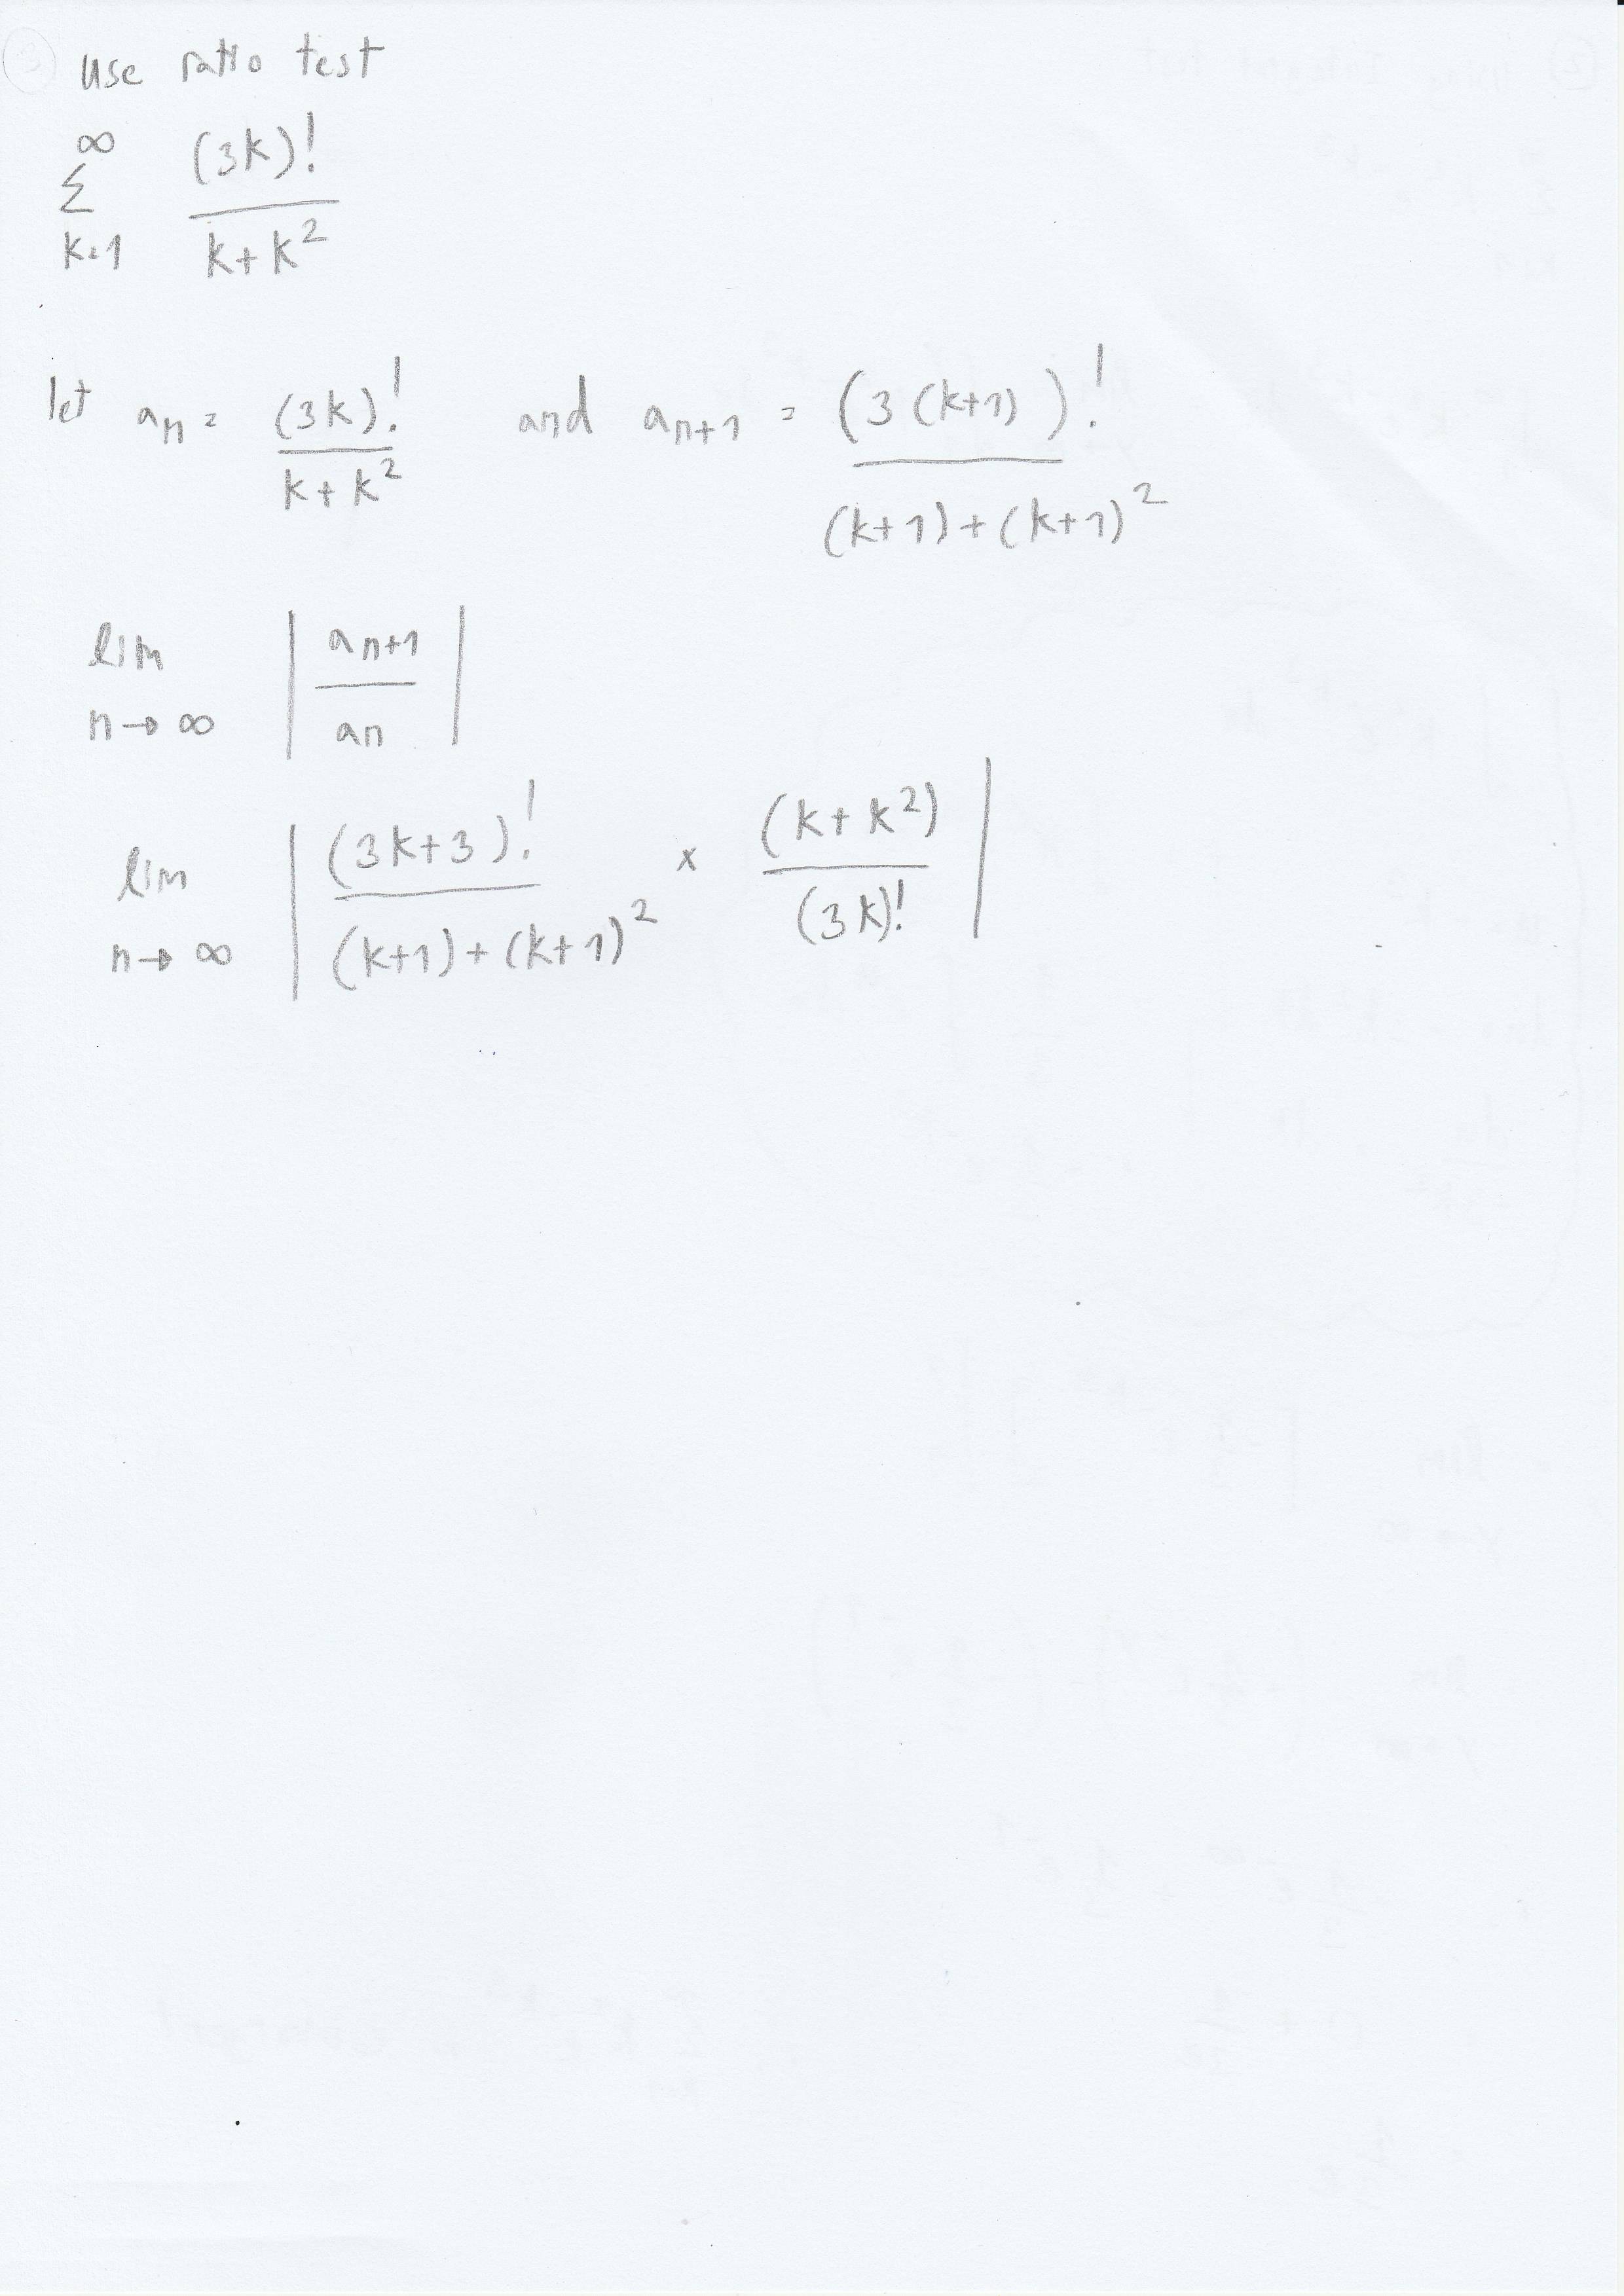 use ratio test
∞
Σ (3k)! / k+k²
k=1
let aₙ = (3k)! / k+k² and aₙ₊₁ = (3(k+1))! / (k+1)+(k+1)²
lim | aₙ₊₁ / aₙ |
n→∞
lim | (3k+3)! / (k+1)+(k+1)² × (k+k²) / (3k)! |
n→∞